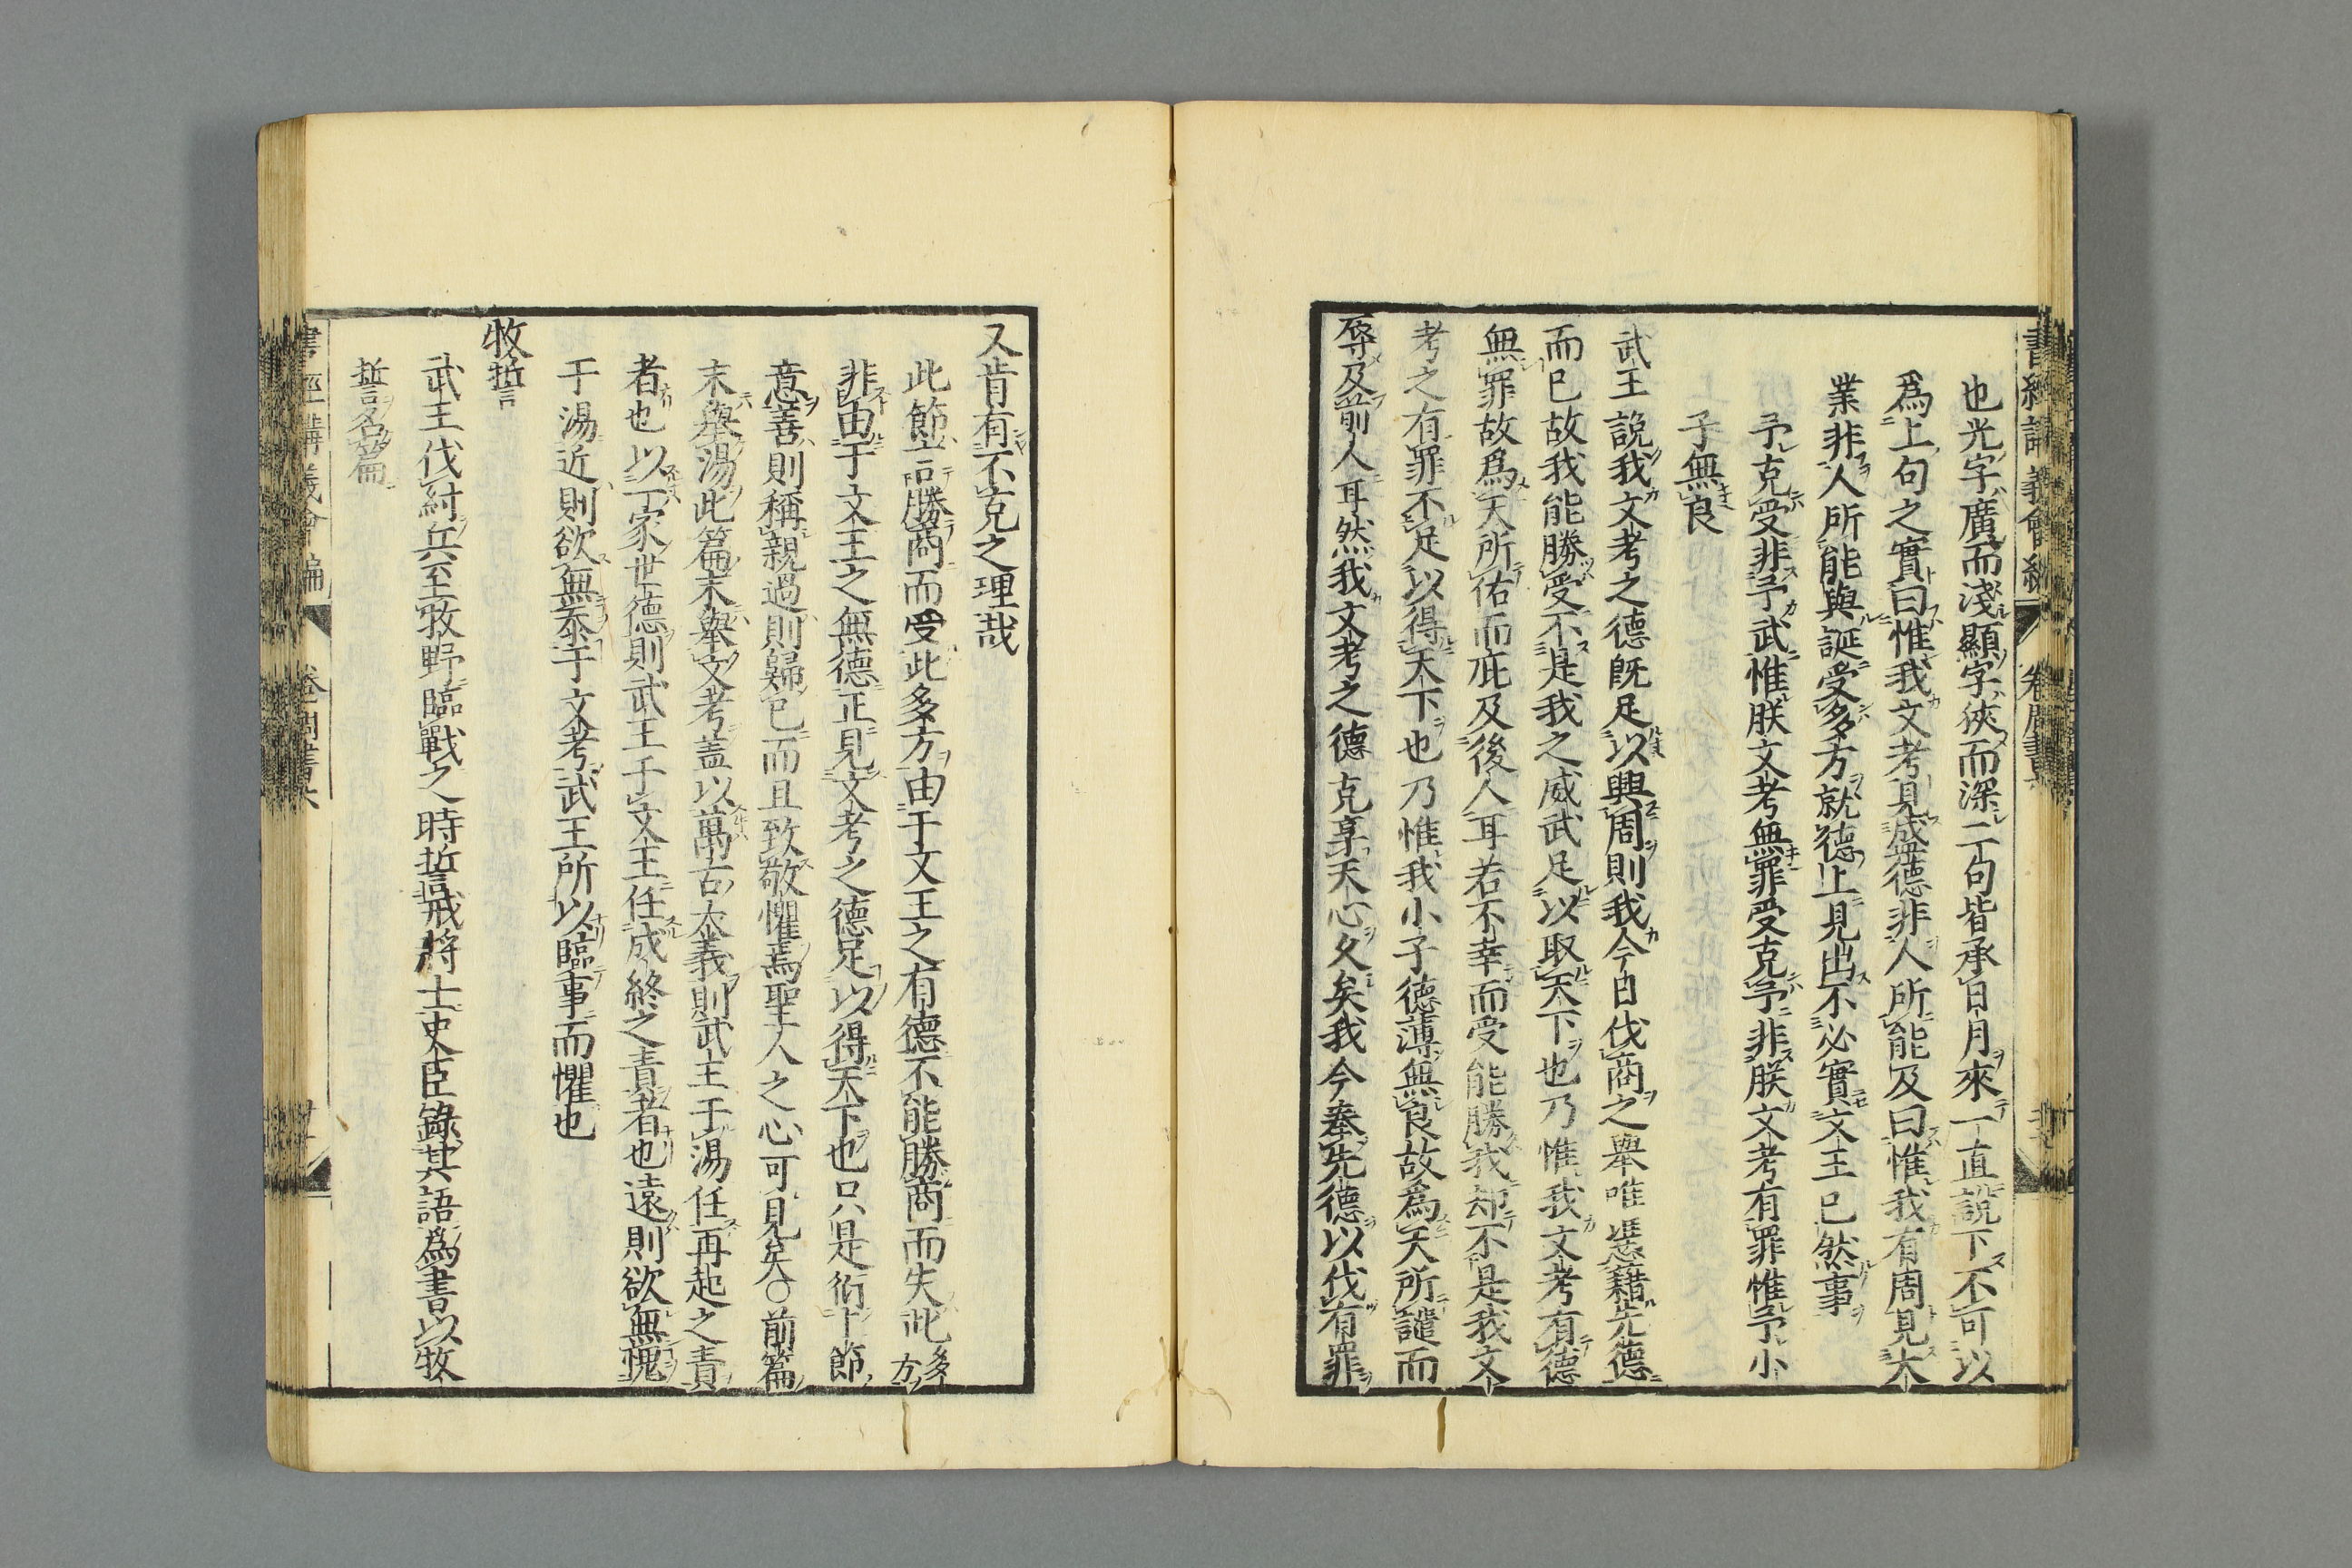 也光字廣而淺顯字狹而深二句皆承日月來一直說下不可以
爲上句之實曰惟我文考見盛德非人所能及曰惟我有周見大
業非人所能與誕受多方就德上見出不必實文王已然事
予克受非予武惟朕文考無罪受克予非朕文考有罪惟予小
子無良
武王說我文考之德既足以興周則我今日伐商之舉唯憑藉先德
而已故我能勝受不是我之威武足以取天下也乃惟我文考有德
無罪故爲天所佑而庇及後人耳若不幸而受能勝我却不是我文
考之有罪不足以得天下也乃惟我小子德薄無良故爲天所譴而
辱及前人耳然我文考之德克享天心久矣我今奉先德以伐有罪
又肯有不克之理哉
此節言勝商而受此多方由于文王之有德不能勝商而失此多方
非由于文王之無德正見文考之德足以得天下也只是衍上節
意善則稱親過則歸己而且致敬懼焉聖人之心可見矣○前篇
末舉湯此篇末舉文考盖以萬古大義則武王于湯任再起之責
者也以一家世德則武王于文王任成終之責者也遠則欲無愧
于湯近則欲無忝于文考武王所以臨事而懼也
牧誓
武王伐紂兵至牧野臨戰之時誓戒將士史臣錄其語爲書以牧
誓名篇